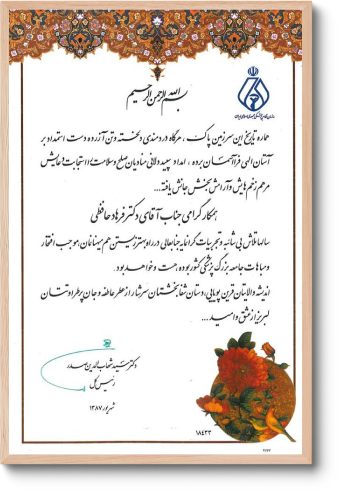 بسم الله الرحمن الرحیم
سازمان نظام پزشکی جمهوری اسلامی ایران
هماره تاریخ این سرزمین پاک، هرگاه دردمندی دلخسته و تن آزرده دست استمداد بر
آستان الهی فرا آسمان برده، امداد سپید دلانی منادیان صلح و سلامت را استجابت دعایش
مرهم زخم هایش و آرامش بخش جانش یافته...
همکار گرامی جناب آقای دکتر فرهاد حافظی
سالها تلاش بی شائبه و تجربیات گرانمایه جنابعالی در راه بهتر زیستن هم میهنان، موجب افتخار
و مباهات جامعه بزرگ پزشکی کشور بوده، هست و خواهد بود.
اندیشه والایتان قرین پویایی، دستان شفابخشتان سرشار از عطر عاطفه و جان پرطراوتتان
لبریز از عشق و امید...
دکتر سید شهاب الدین صدر
رئیس کل
شهریور ۱۳۸۷
۱۸۴۳۳